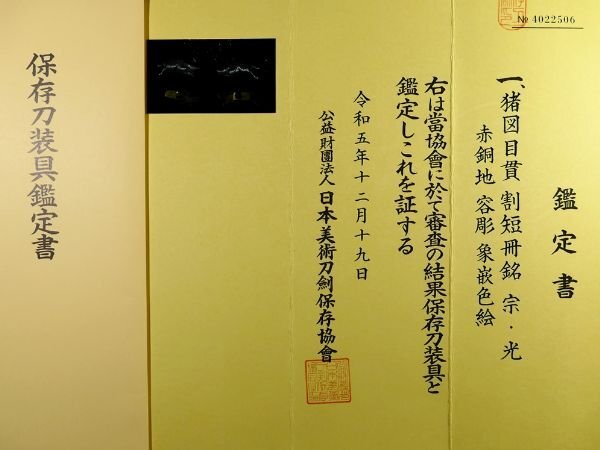 № 4022506
鑑定書
一、猪図目貫 割短冊銘 宗・光
赤銅地 容彫 象嵌色絵
右は當協會に於て審査の結果保存刀装具と
鑑定しこれを証する
令和五年十二月十九日
公益財團法人 日本美術刀劍保存協會
保存刀装具鑑定書